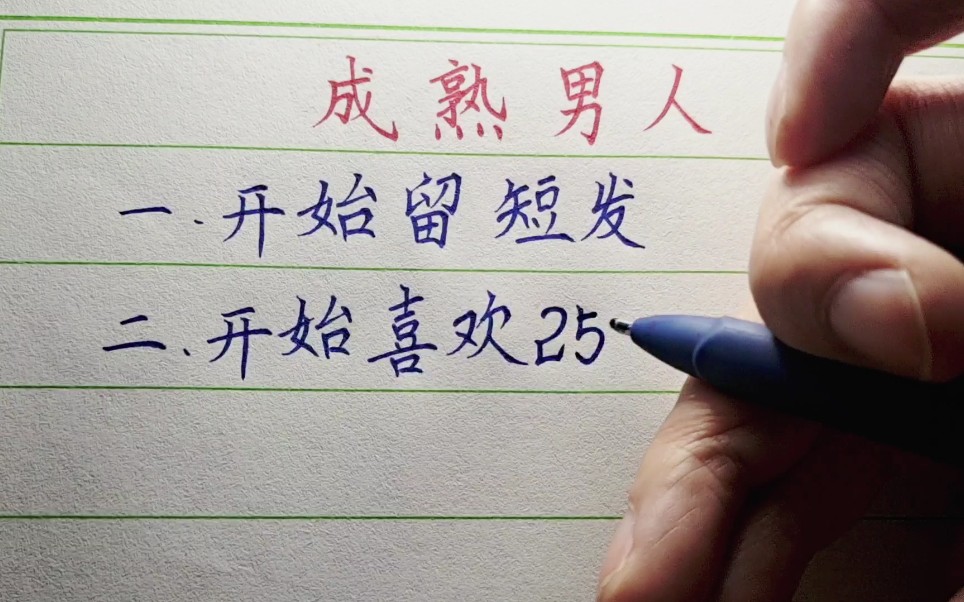 成熟男人
一.开始留短发
二.开始喜欢25